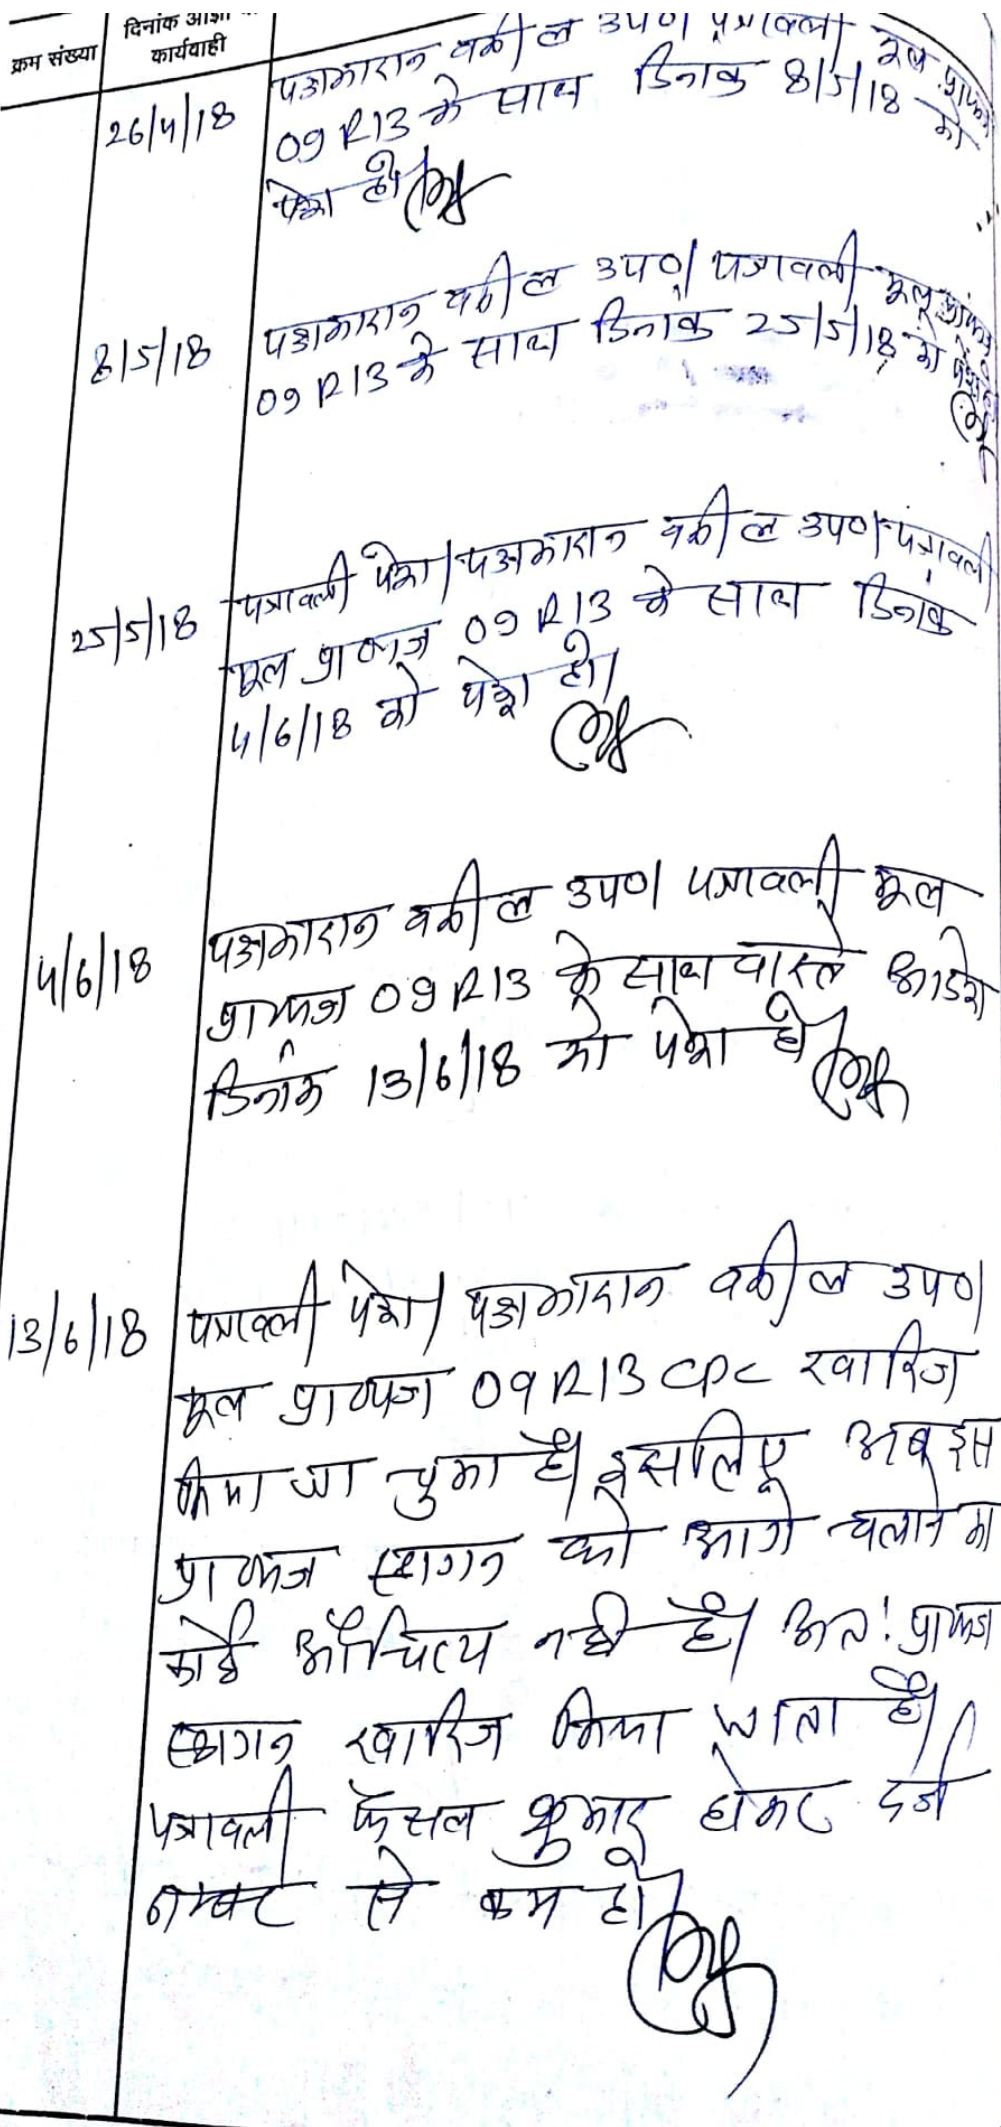 क्रम संख्या
दिनांक आज्ञा
कार्यवाही
26/4/18
पक्षकारान वकील उप०। पत्रावली मूल
09 R13 के साथ दिनांक 8/5/18 को
पेश हो।
8/5/18
पक्षकारान वकील उप०। पत्रावली मूल
09 R13 के साथ दिनांक 25/5/18 को
25/5/18
पत्रावली पेश। पक्षकारान वकील उप०। पत्रावली
मूल प्रा०पत्र 09 R13 के साथ दिनांक
4/6/18 को पेश हो।
4/6/18
पक्षकारान वकील उप०। पत्रावली मूल
प्रा०पत्र 09 R13 के साथ वास्ते आदेश
दिनांक 13/6/18 को पेश हो।
13/6/18
पत्रावली पेश। पक्षकारान वकील उप०।
मूल प्रा०पत्र 09 R13 CPC खारिज
किया जा चुका है। इसलिए अब इस
प्रा०पत्र स्थगन को आगे चलाने का
कोई औचित्य नही है। अत: प्रा०पत्र
स्थगन खारिज किया जाता है।
पत्रावली फैसल शुमार होकर दर्ज
नम्बर से कम हो।